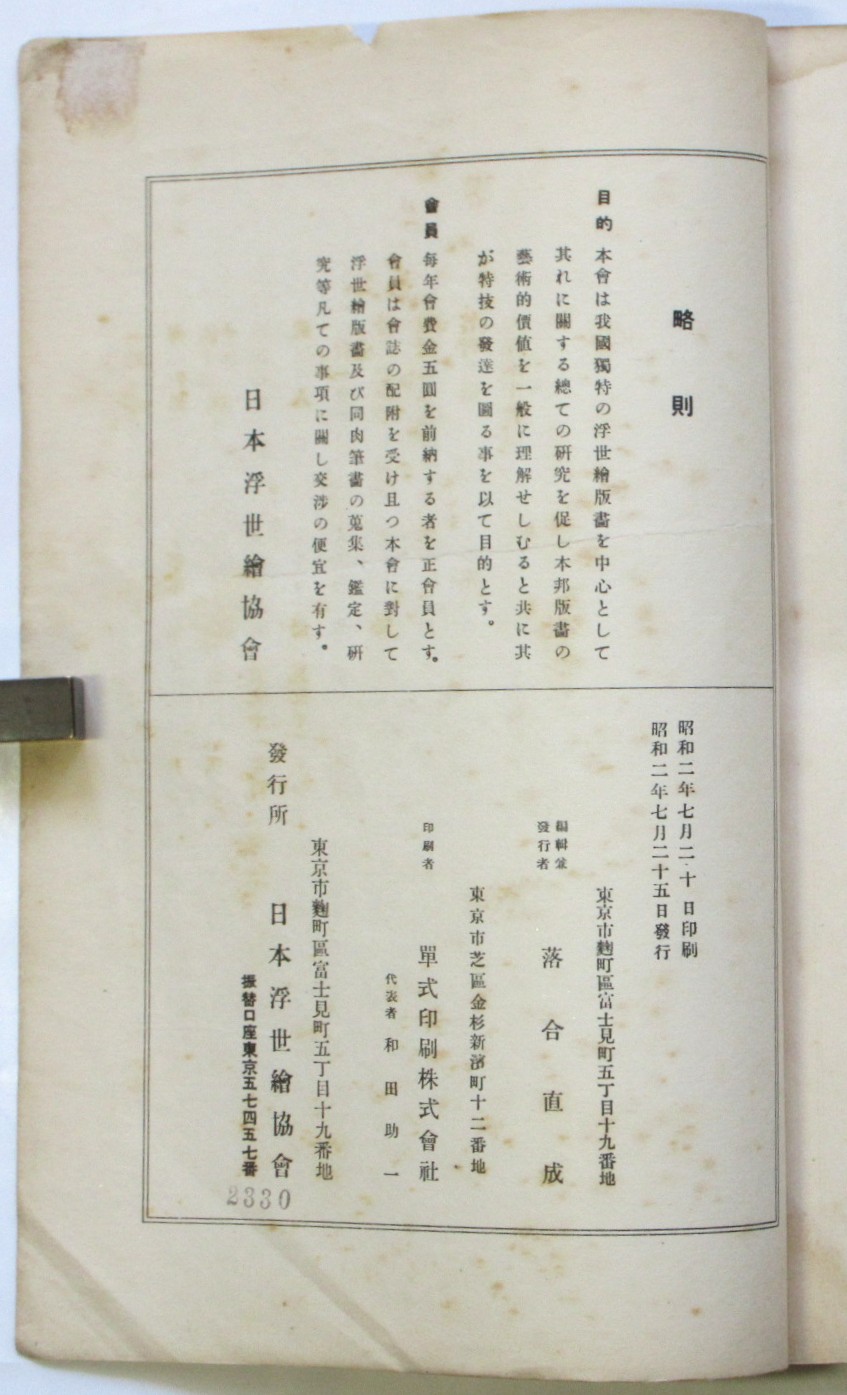 略則
目的 本會は我國獨特の浮世繪版畵を中心として
其れに關する總ての硏究を促し本邦版畵の
藝術的價値を一般に理解せしむると共に其
が特技の發達を圖る事を以て目的とす。
會員 每年會費金五圓を前納する者を正會員とす。
會員は會誌の配附を受け且つ本會に對して
浮世繪版畵及び同肉筆畵の蒐集、鑑定、硏
究等凡ての事項に關し交渉の便宜を有す。
日本浮世繪協會
昭和二年七月二十日印刷
昭和二年七月二十五日發行
東京市麴町區富士見町五丁目十九番地
編輯並
發行者 落合直成
東京市芝區金杉新濱町十二番地
印刷者 單式印刷株式會社
代表者 和田助一
東京市麴町區富士見町五丁目十九番地
發行所 日本浮世繪協會
振替口座東京五七四五七番
2330